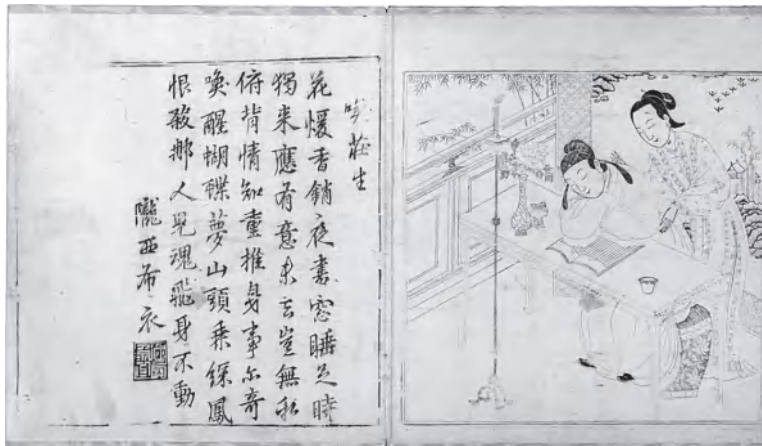 莊生
花煖香銷夜書窓睡足時
獨來應有意未去豈無私
俯背情知重推身事亦奇
喚醒蝴蝶夢山頭乘綵鳳
恨殺那人兒魂飛身不動
隴西布衣